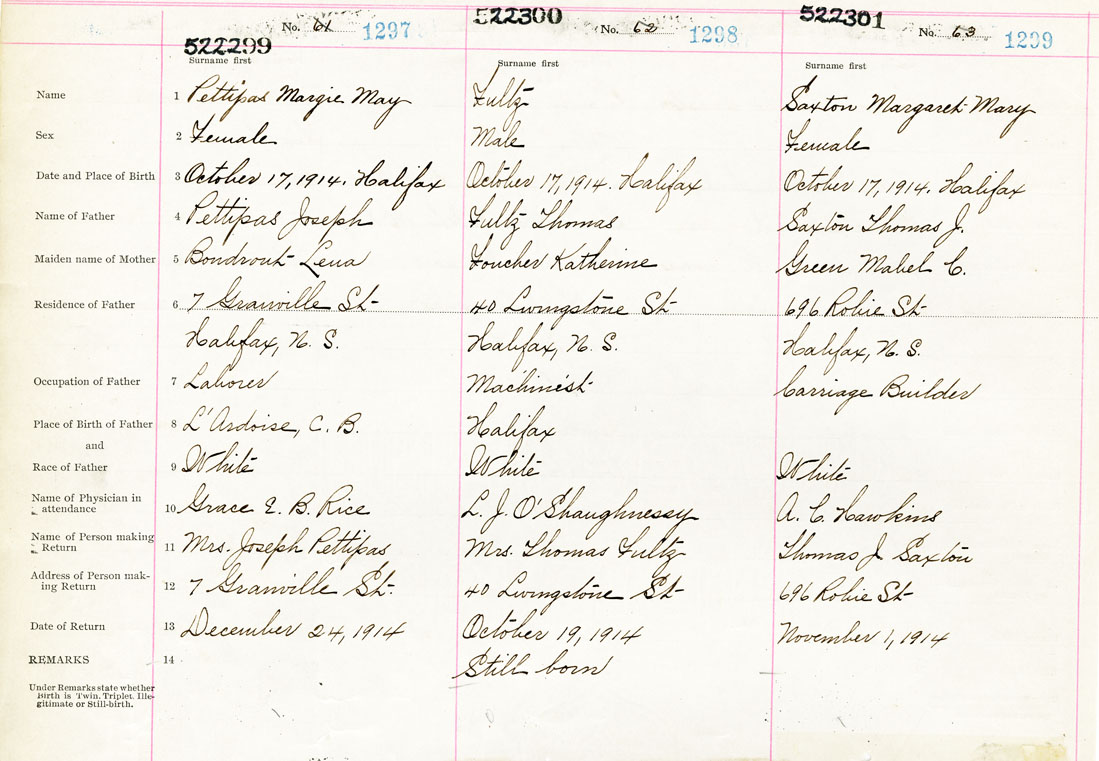 522299 No. 61 1297 522300 No. 62 1298 522301 No. 63 1299
Surname first Surname first Surname first
Name 1 Pettipas Margie May Fultz Saxton Margaret Mary
Sex 2 Female Male Female
Date and Place of Birth 3 October 17, 1914. Halifax October 17, 1914. Halifax October 17, 1914. Halifax
Name of Father 4 Pettipas Joseph Fultz Thomas Saxton Thomas J.
Maiden name of Mother 5 Bondrout Lena Foucher Katherine Green Mabel C.
Residence of Father 6 7 Granville St 40 Livingstone St 696 Robie St
Halifax, N. S. Halifax, N. S. Halifax, N. S.
Occupation of Father 7 Laborer Machinist Carriage Builder
Place of Birth of Father 8 L'Ardoise, C. B. Halifax
and
Race of Father 9 White White White
Name of Physician in
attendance 10 Grace E. B. Rice L. J. O'Shaughnessy A. C. Hawkins
Name of Person making
Return 11 Mrs. Joseph Pettipas Mrs. Thomas Fultz Thomas J Saxton
Address of Person mak-
ing Return 12 7 Granville St. 40 Livingstone St 696 Robie St
Date of Return 13 December 24, 1914 October 19, 1914 November 1, 1914
REMARKS 14 Still born
Under Remarks state whether
Birth is Twin, Triplet, Ille-
gitimate or Still-birth.